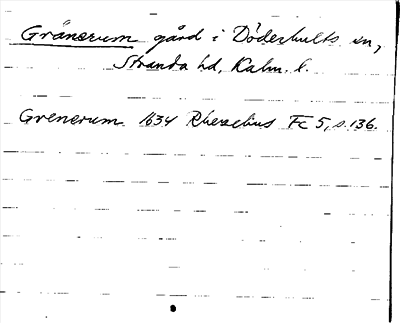 Gränerum gård i Döderhults sn,
Stranda hd, Kalm. l.
Grenerum 1634 Rhezelius Fc 5, s. 136.